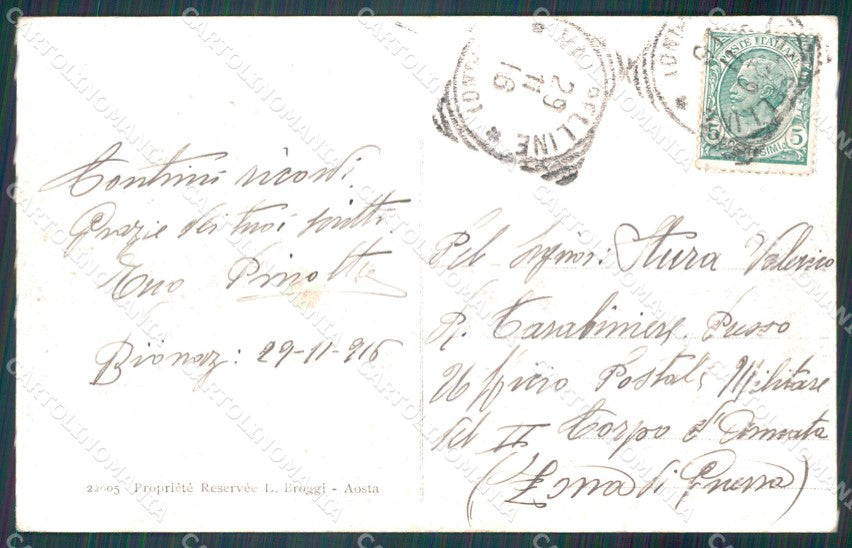 VALPELLINE
29
11
16
POSTE ITALIANE
5
5
Continui ricordi.
Grazie dei tuoi scritti.
Tuo Pinotto
Bionaz: 29-11-916
22005 - Propriété Reservée L. Broggi - Aosta
Pel Signor: Stura Valerico
R. Carabiniere Presso
Ufficio Postale Militare
del II Corpo d'Armata
(Zona di Guerra)
CARTOLINOMANIA